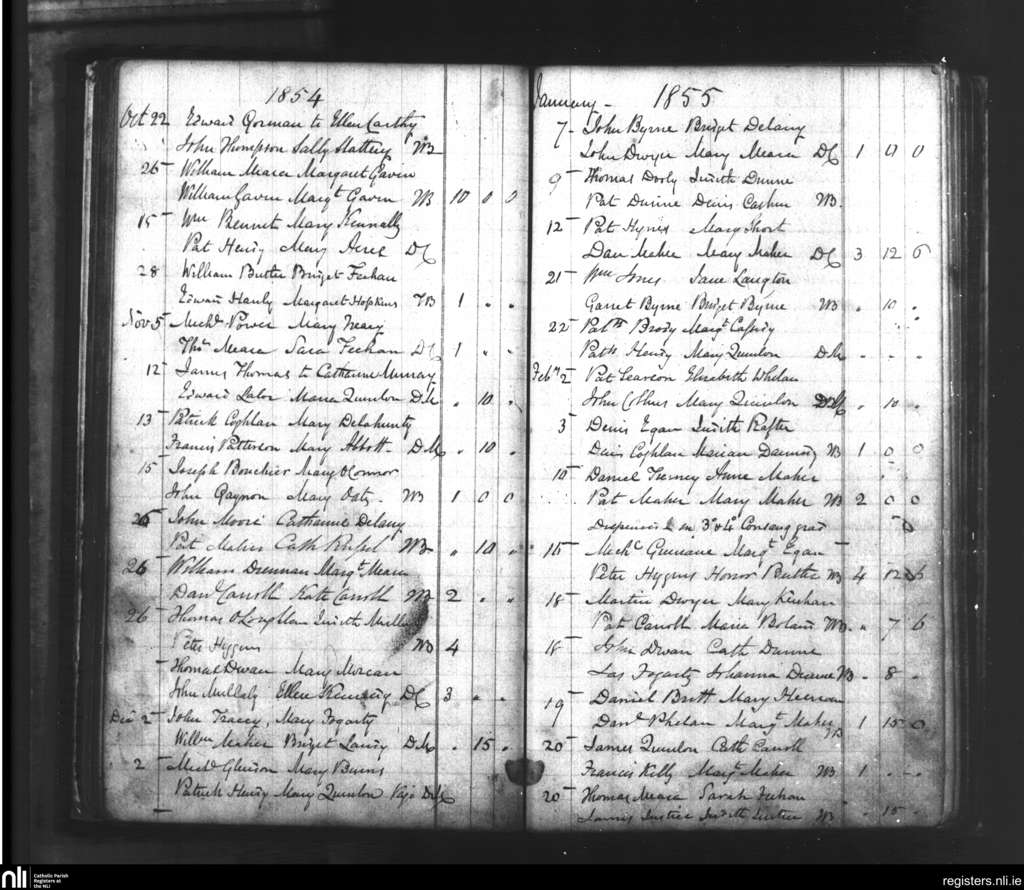 1854
Oct 22 Edward Gorman to Ellen Carthy
John Thompson Sally Slattery WB
26 William Meara Margaret Gavin
William Gavin Margt Gavin WB 10 0 0
15 Wm Bennet Mary Kennally
Pat Henry Mary Acres DC
28 William Butler Bridget Feehan
Edward Hanly Margaret Hopkins WB 1 " "
Nov 5 Michl Power Mary Neary
Thos Meara Sara Feehan DC 1 " "
12 James Thomas to Catharine Murray
Edward Lalor Maria Quinlon DM " 10 "
13 Patrick Coghlan Mary Delahunty
Francis Patterson Mary Abbott DM " 10 "
15 Joseph Bouchier Mary OConnor
John Gaynor Mary Oats WB 1 0 0
26 John Moore Catharine Delany
Pat Maher Cath WB " 10 "
26 William Drennan Margt Meara
Danl Carroll Kate Carroll WB 2 " "
26 Thomas O'Loughlan Judith
Peter Higgins WB 4
Thomas Dwan Mary
John Mullaly Ellen Kennedy DC 3 " "
Dec 2 John Tracey, Mary Fogarty
Maher Bridget DM " 15 "
2 Michl Gleeson Mary Burns
Patrick Henry Mary Quinlon DM
January 1855
7 John Byrne Bridget Delany
John Dwyer Mary Meara DC 1 0 0
9 Thomas Judith Dunne
Pat Dunne Denis Cashin WB
12 Pat Hynes Mary Short
Dan Maher Mary Maher DC 3 12 6
21 Wm Jones Jane Langton
Garret Byrne Bridget Byrne WB " 10 "
22 Patk Brody Margt Cassidy
Patk Henry Mary Quinlon DM " " "
Feby 2 Pat Elizabeth Whelan
John Collins Mary Quinlon DM " 10 "
3 Denis Egan Judith Rafter
Denis Coghlan Marian WB 1 0 0
10 Daniel Tierney Anne Maher
Pat Maher Mary Maher WB 2 0 0
Dispensed in 3o & 4o Consang grad
15 Michl Margt Egan
Peter Higgins Honor Butler WB 4 12 6
18 Martin Dwyer Mary
Pat Carroll Maria Boland WB " 7 6
18 John Dwan Cath Dunne
Jas Fogarty Johanna WB " 8 "
19 Daniel Britt Mary
Danl Phelan Margt Maher WB 1 15 0
20 James Quinlon Cath Carroll
Francis Kelly Margt Maher WB 1 " "
20 Thomas Meara Sarah Feehan
James Justice Judith Justice WB " 15 "
nli
Catholic Parish
Registers at
the NLI
registers.nli.ie